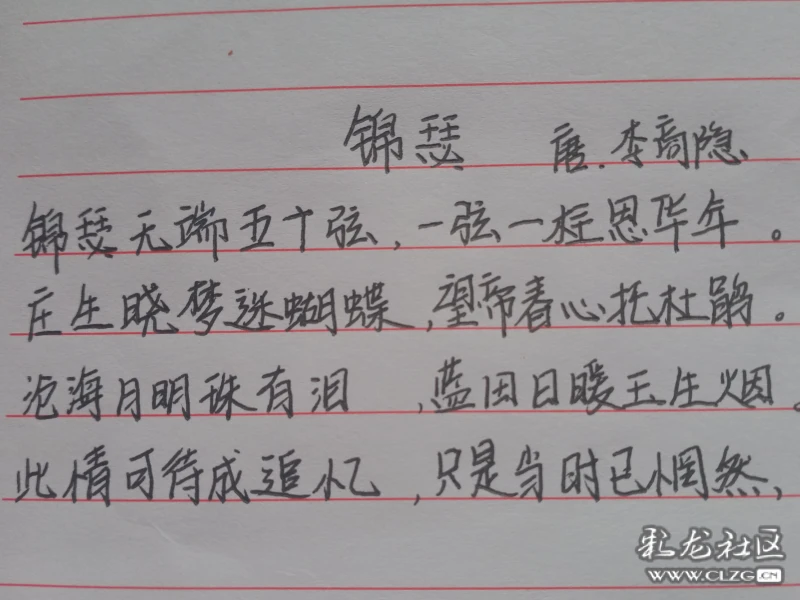 锦瑟 唐.李商隐
锦瑟无端五十弦,一弦一柱思华年。
庄生晓梦迷蝴蝶,望帝春心托杜鹃。
沧海月明珠有泪,蓝田日暖玉生烟。
此情可待成追忆,只是当时已惘然,
彩龙社区
WWW.CLZG.CN